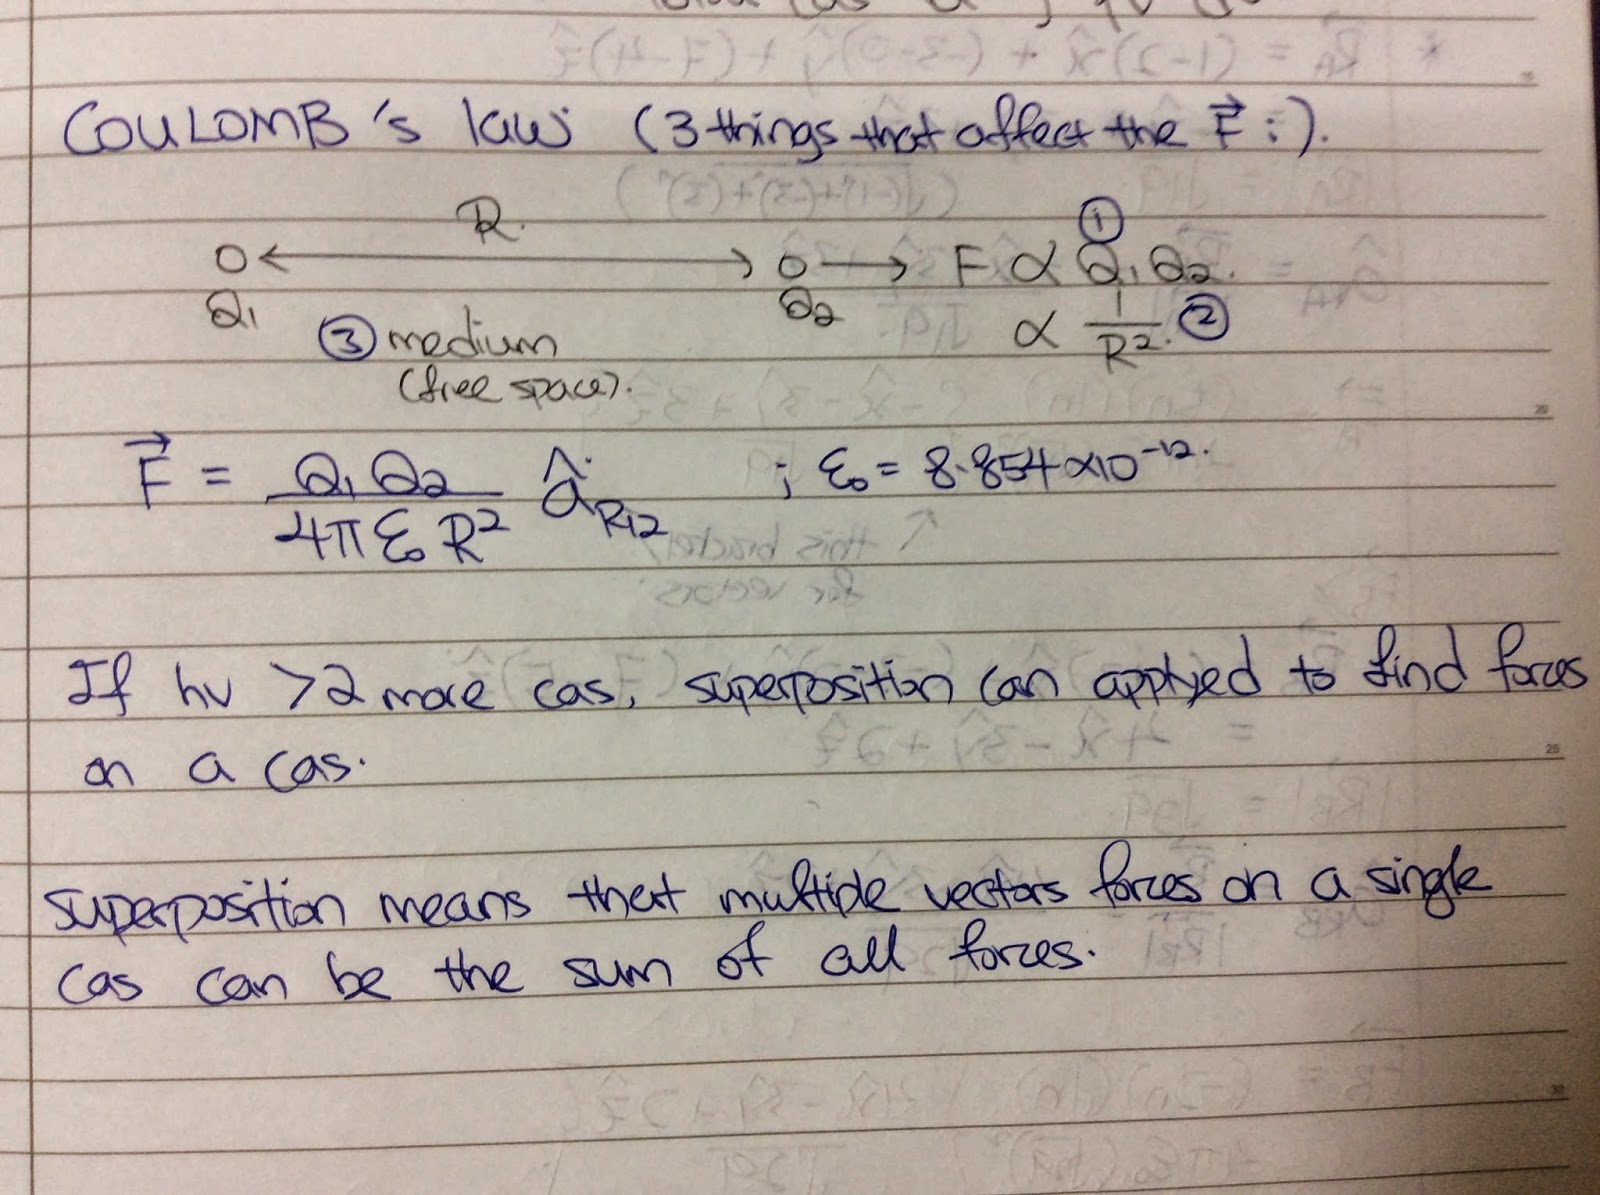 COULOMB's law (3 things that affect the F⃗ :).
R.
①
O ⟷ O ⟶ F ∝ Q₁ Q₂.
Q₁ Q₂ ∝ 1/R². ②
③ medium
(free space).
F⃗ = Q₁ Q₂ / 4π ε₀ R² â_R12 ; ε₀ = 8.854 x10⁻¹².
If hv >2 more cas, superposition can applyed to find forces
on a cas.
superposition means that multiple vectors forces on a single
cas can be the sum of all forces.